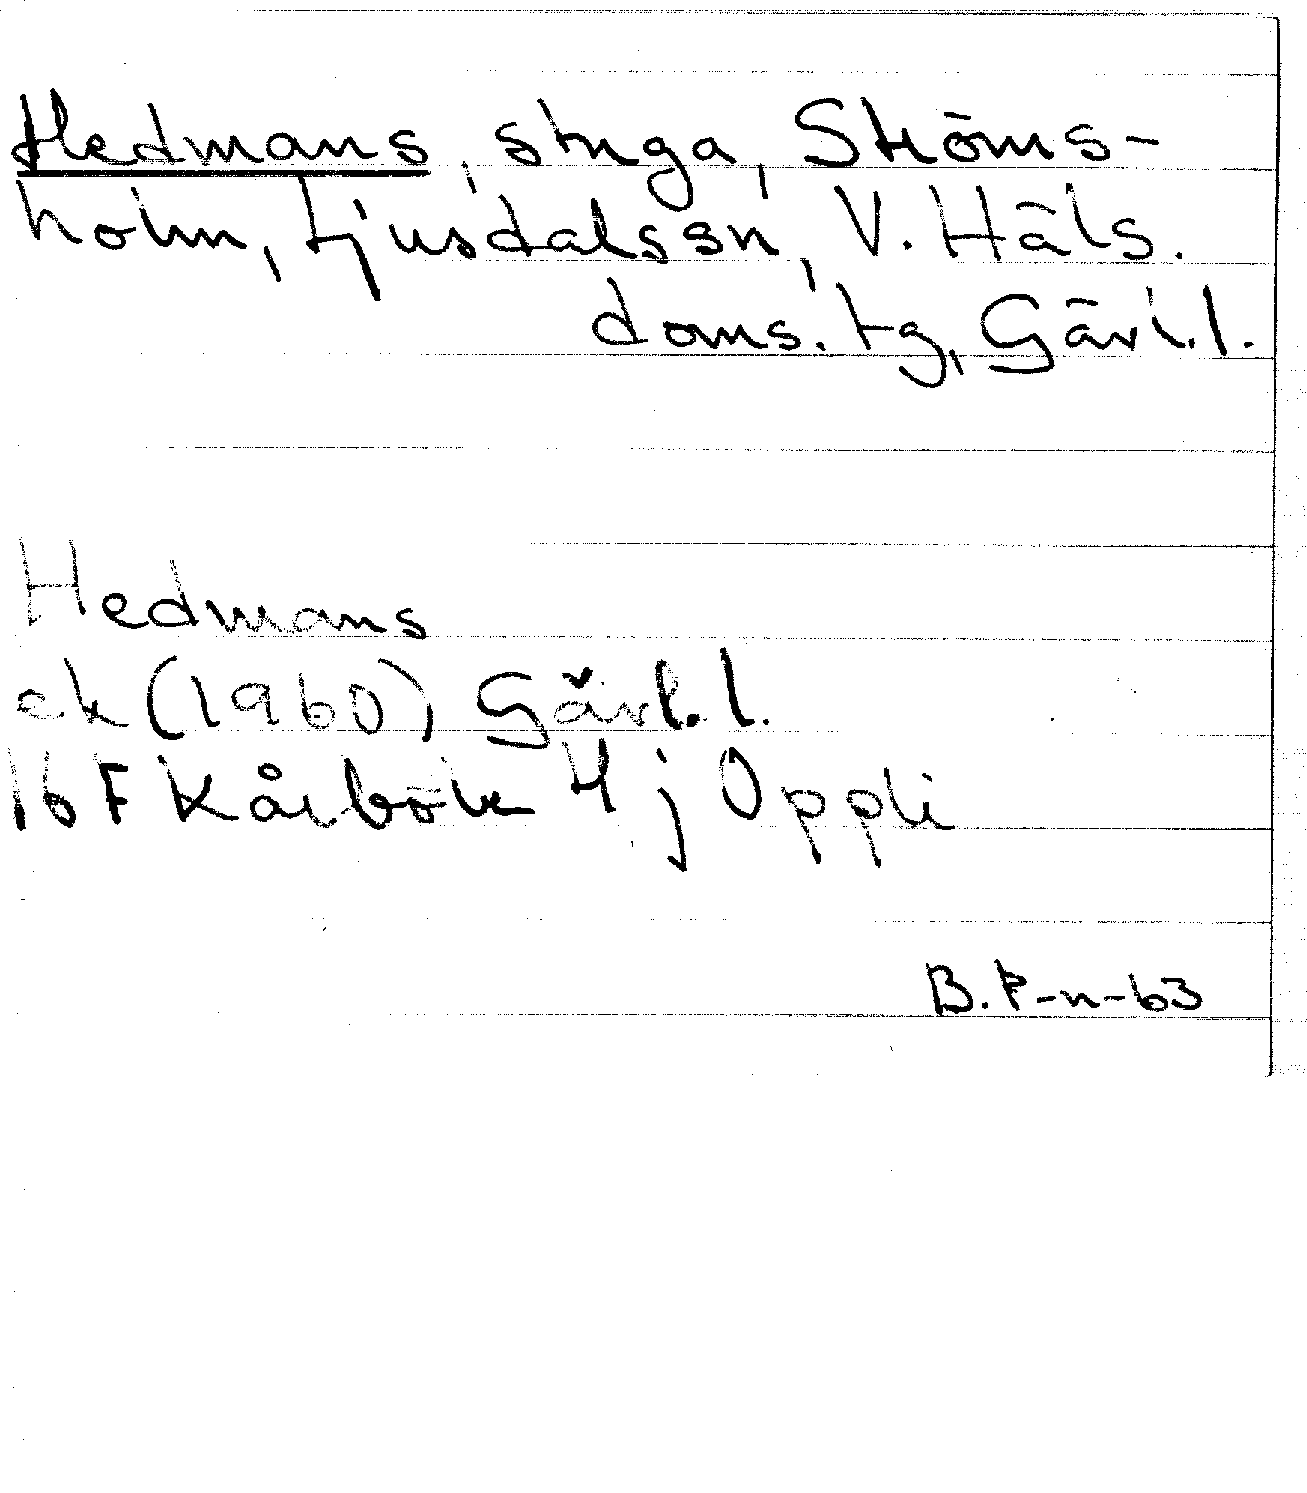 Hedmans, stuga, Ströms-
holm, Ljusdals sn, V. Häls.
doms. tg, Gävl. l.
Hedmans
ek (1960) Gävl. l.
16 F Kårböle 4 j Oppli
B. P-n-63